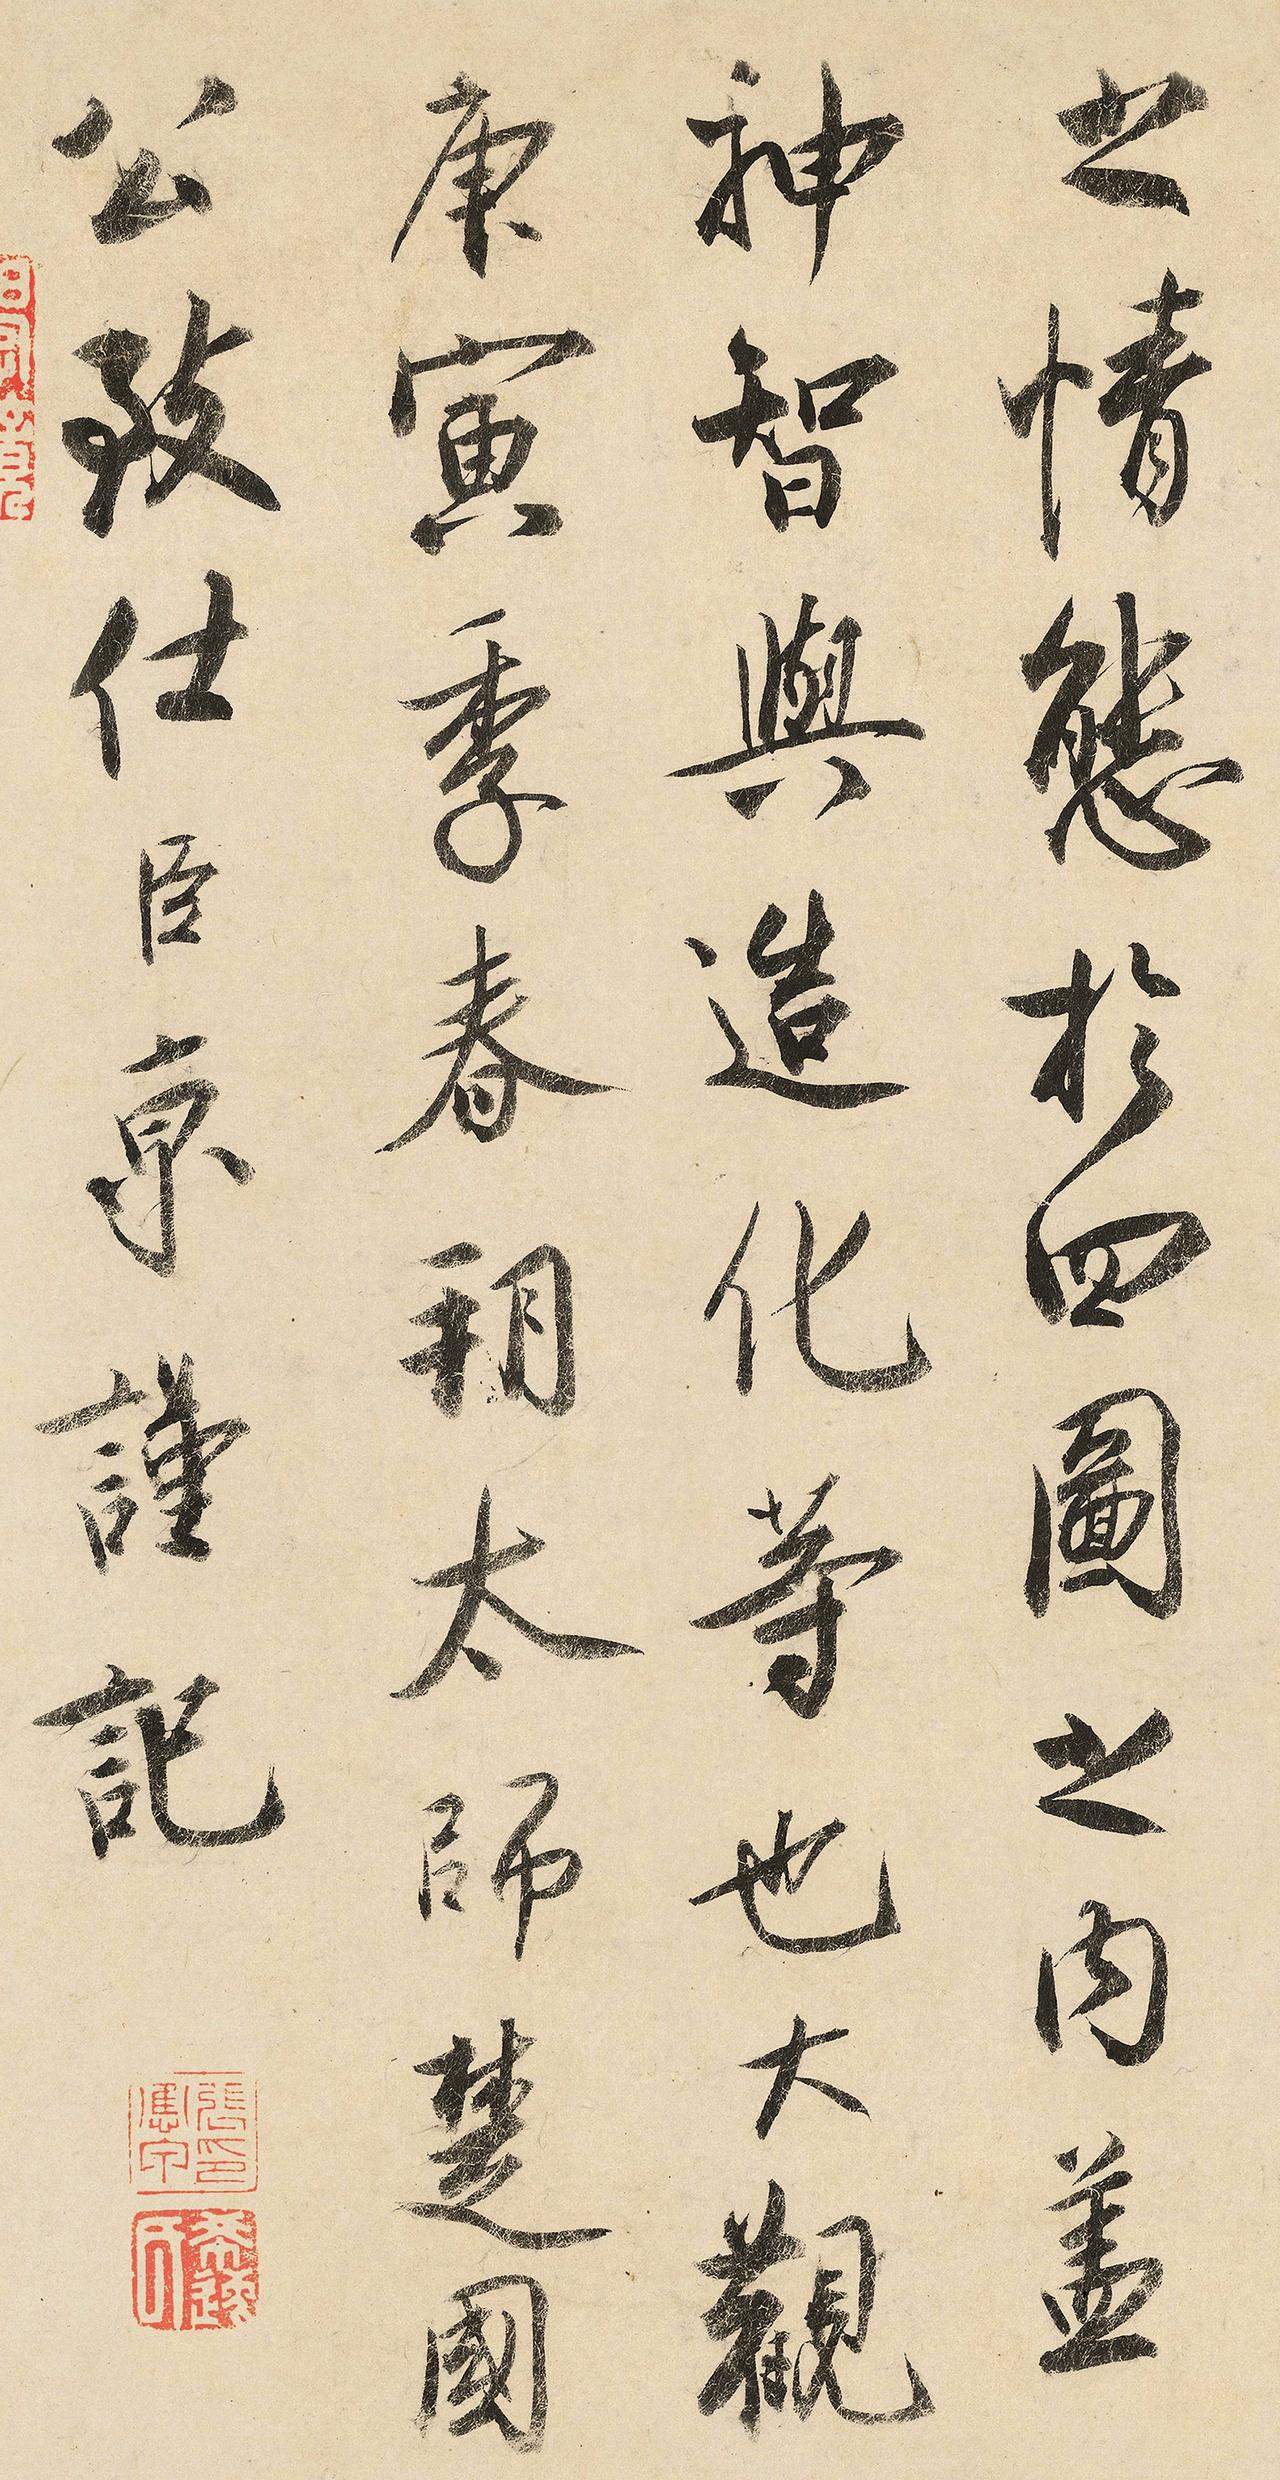 之情態於四圖之内盖
神智與造化等也大觀
庚寅季春朔太師楚國
公致仕臣京謹記